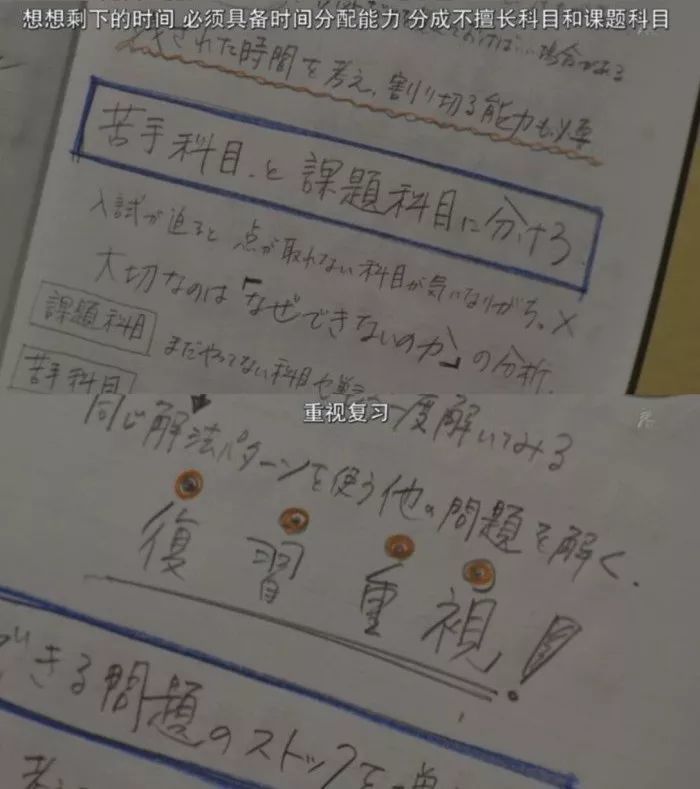 想想剩下的时间 必须具备时间分配能力 分成不擅长科目和课题科目
された時間を考え、割り切る能力も必要
苦手科目と課題科目に分ける
入試が迫ると点が取れない科目が気になりがち。×
大切なのは「なぜできないのか」の分析.
課題科目 まだやってない科目や単
苦手科目
重视复习
度解いてみる
同じ解法パターンを使う他の問題を解く.
復習重視!
できる問題のストックを